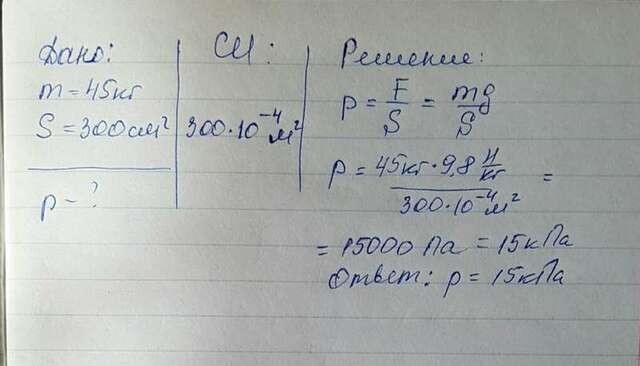 Дано:
m = 45кг
S = 300см²
p - ?
СИ:
300·10⁻⁴м²
Решение:
p = F/S = mg/S
p = 45кг·9,8 Н/кг / 300·10⁻⁴м² =
= 15000 Па = 15кПа
Ответ: p = 15кПа